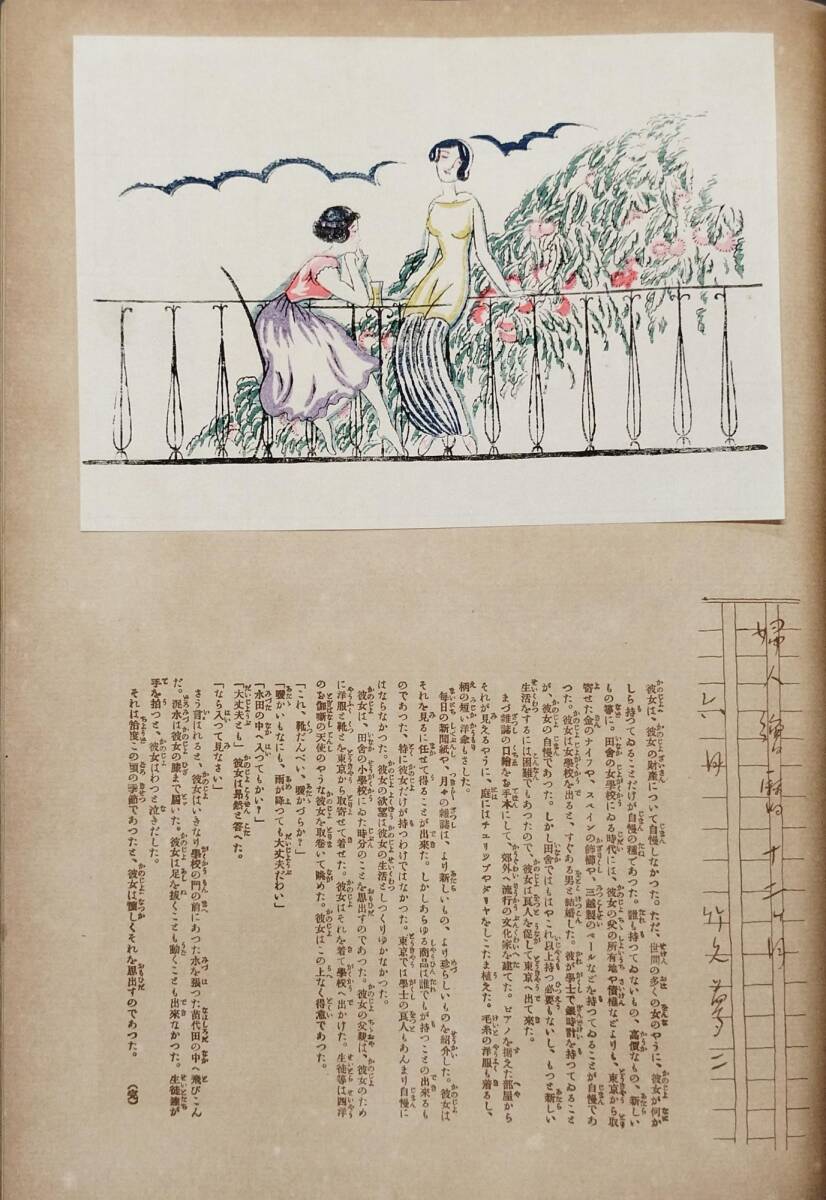 婦人繪暦十二ヶ月
六月
竹久夢二
彼女は、彼女の財產について自慢しなかつた。ただ、世間の多くの女のやうに、彼女が何か
しら持つてゐることだけが自慢の種であつた。誰も持つてゐないもの、高價なもの、新しい
もの等に。田舍の女學校にゐる時代には、彼女の父の所有地や債權などよりも、東京から取
寄せた金のナイフや、スペインの飾櫛や、三越製のベールなどを持つてゐることが自慢であ
つた。彼女は女學校を出ると、すぐある男と結婚した。彼が學士で銀時計を持つてゐること
が、彼女の自慢であつた。しかし田舍ではもはやこれ以上持つ必要もないし、もつと新しい
生活をするには困難でもあつたので、彼女は良人を促して東京へ出て來た。
まづ雜誌の口繪をお手本にして、郊外へ流行の文化家を建てた。ピアノを据えた部屋から
それが見えるやうに、庭にはチユリツプやダリヤをしこたま植えた。毛糸の洋服も着るし、
柄の短い洋傘もさした。
每日の新聞紙や、月々の雜誌は、より新しいもの、より珍らしいものを紹介した。彼女は
それを見るに任せて得ることが出來た。しかしあらゆる商品は誰でもが持つことの出來るも
のであつた、特に彼女だけが持つわけではなかつた。東京では學士の良人もあんまり自慢に
はならなかつた。彼女の欲望は彼女の生活としつくりゆかなかつた。
彼女は、田舍の小學校にゐた時分のことを思出すのであつた。彼女の父親は、彼女のため
に洋服と靴とを東京から取寄せて着せた。彼女はそれを着て學校へ出かけた。生徒等は西洋
のお伽噺の天使のやうな彼女を取卷いて眺めた。彼女はこの上なく得意であつた。
「これ、靴だんべい、暖かづらか?」
「暖かいもなにも、雨が降つても大丈夫だわい」
「水田の中へ入つてもかい?」
「大丈夫とも」彼女は昂然と答へた。
「なら入つて見なさい」
さう言はれると、彼女はいきなり學校の門の前にあつた水を張つた苗代田の中へ飛びこん
だ。泥水は彼女の膝まで屆いた。彼女は足を拔くことも動くことも出來なかつた。生徒達が
手を拍つと、彼女はわつと泣きだした。
それは恰度この頃の季節であつたと、彼女は懷しくそれを思出すのであつた。
(完)